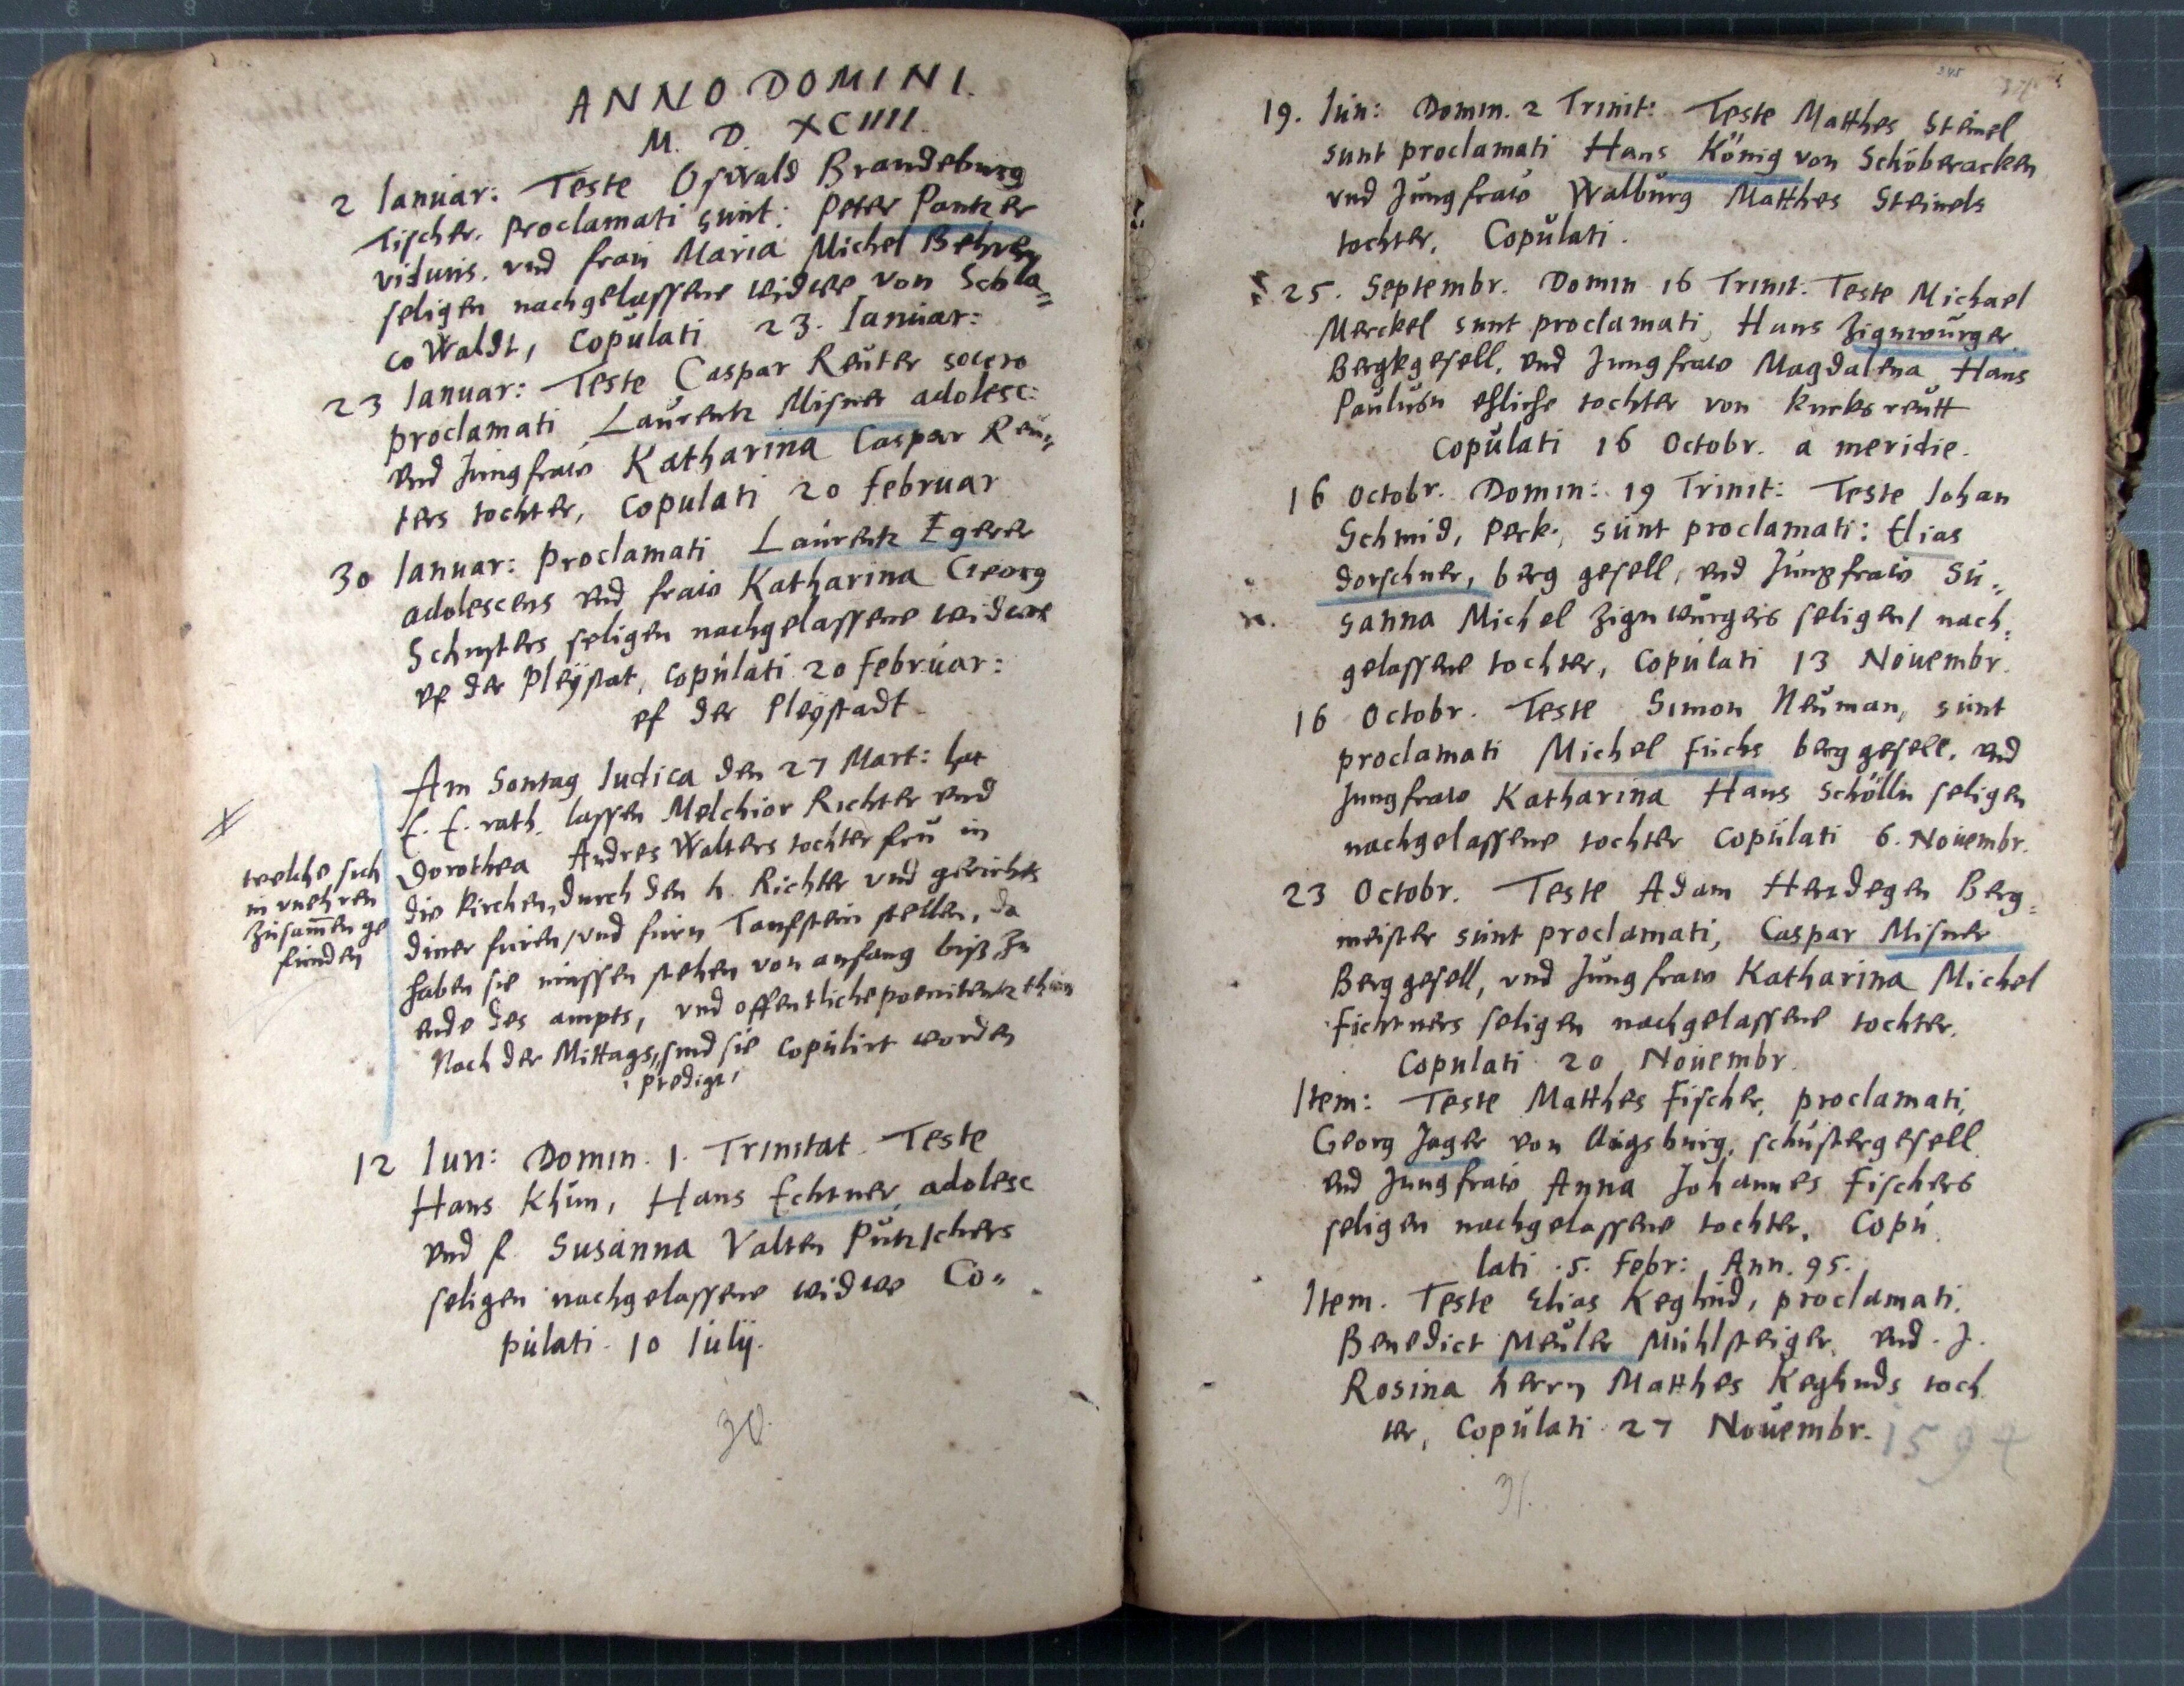 ANNO DOMINI.
M. D. XCIIII.
2 Ianuar: Teste Oswald Brandeburg
Tischer. Proclamati sunt: Peter Pantzer
viduus. vnd frau Maria Michel Behren
seligen nachgelassene widwe von Schla„
coWaldt, Copulati 23. Ianuar:
23 Ianuar: Teste Caspar Reuter socero
proclamati Laurentz Misner adolesc:
vnd Jungfraw Katharina Caspar Reu„
ters tochter, Copulati 20 Februar
30 Ianuar: Proclamati Laurentz Egerer
adolescens vnd fraw Katharina Georg
Schusters seligen nachgelassene widwe
vf der Pleÿstat, Copulati 20 Februar:
vf der Pleÿstadt.
Am Sontag Iudica den 27 Mart: hat
E. E. rath. lassen Melchior Richter vnd
Dorothea Andres Walters tochter fru in
die kirchen, durch den h. Richter vnd gerichts
diner furen, vnd furn Taufstein stellen, da
haben sie müssen stehen von anfang biß zu
ende des ampts, vnd offentliche poenitentz thun
Nach der Mittags„ sind sie Copulirt worden
predigt,
welche sich
in vnehren
zusammen ge
funden
12 Iun: Domin. 1. Trinitat. Teste
Hans Khün, Hans Echtner, adolesc
vnd f. Susanna Valten Pützschers
seligen nachgelassene widwe Co„
pulati. 10 Iulÿ.
30.
345
19. Iun: Domin. 2 Trinit: Teste Matthes Steinel
sunt proclamati Hans König von Schöberacken
vnd Jungfraw Walburg Matthes Steinels
tochter, Copulati.
25. Septembr. Domin 16 Trinit. Teste Michael
Merckel sunt proclamati, Hans Zignwürger
Bergkgesell, vnd Jungfraw Magdalena Hans
Paulusn ehliche tochter von kucksreutt
Copulati 16 Octobr. a meridie.
16 Octobr. Domin: 19 Trinit: Teste Iohan
Schmid, Peck., sunt proclamati: Elias
dorschner, berg gesell, vnd Jungfraw Su„
sanna Michel Zignwürgers seligen, nach„
gelassene tochter, Copulati 13 Nouembr.
16 Octobr. Teste Simon Neuman, sunt
proclamati Michel Fuchs berggesell, vnd
Jungfraw Katharina Hans Schölln seligen
nachgelassene tochter Copulati 6. Nouembr.
23 Octobr. Teste Adam Herdegen Berg„
meister sunt proclamati, Caspar Misner
Berggesell, vnd Jungfraw Katharina Michel
Fichtners seligen nachgelassene tochter,
Copulati 20 Nouembr.
Item: Teste Matthes Fischer, proclamati,
Georg Jager von Augsburg, schustergesell
vnd Jungfraw Anna Johannes Fischers
seligen nachgelassene tochter, Copu
lati .5. Febr: Ann. 95.
Item. Teste Elias Keglind, proclamati,
Benedict Meuler Mühlsteiger, vnd. J.
Rosina herrn Matthes Keglinds toch
ter, Copulati 27 Nouembr. 1594
31.